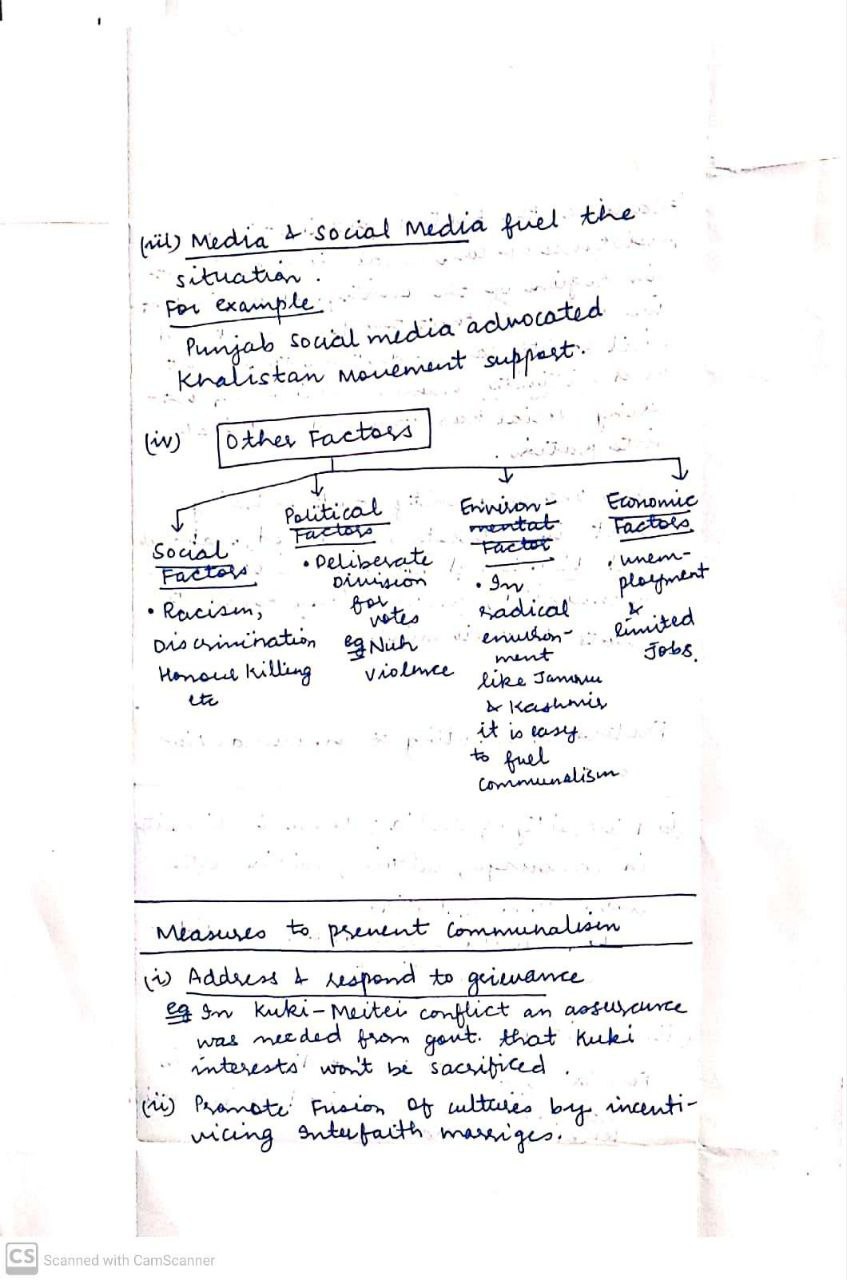 (iii) Media & Social Media fuel the
situation.
For example
Punjab social media advocated
Khalistan Movement support.
(iv) Other Factors
Social
Factors
• Racism,
Discrimination
Honour Killing
etc
Political
Factors
• Deliberate
Division
for
votes
eg Nuh
violence
Environ-
mental
Factor
• In
radical
environ-
ment
like Jammu
& Kashmir
it is easy
to fuel
Communalism
Economic
Factors
• unem-
ployment
&
limited
Jobs.
Measures to prevent Communalism
(i) Address & respond to grievance
eg In Kuki-Meitei conflict an assurance
was needed from govt. that Kuki
interests won't be sacrificed.
(ii) Promote Fusion of cultures by incenti-
vicing Interfaith marriges.
CS Scanned with CamScanner